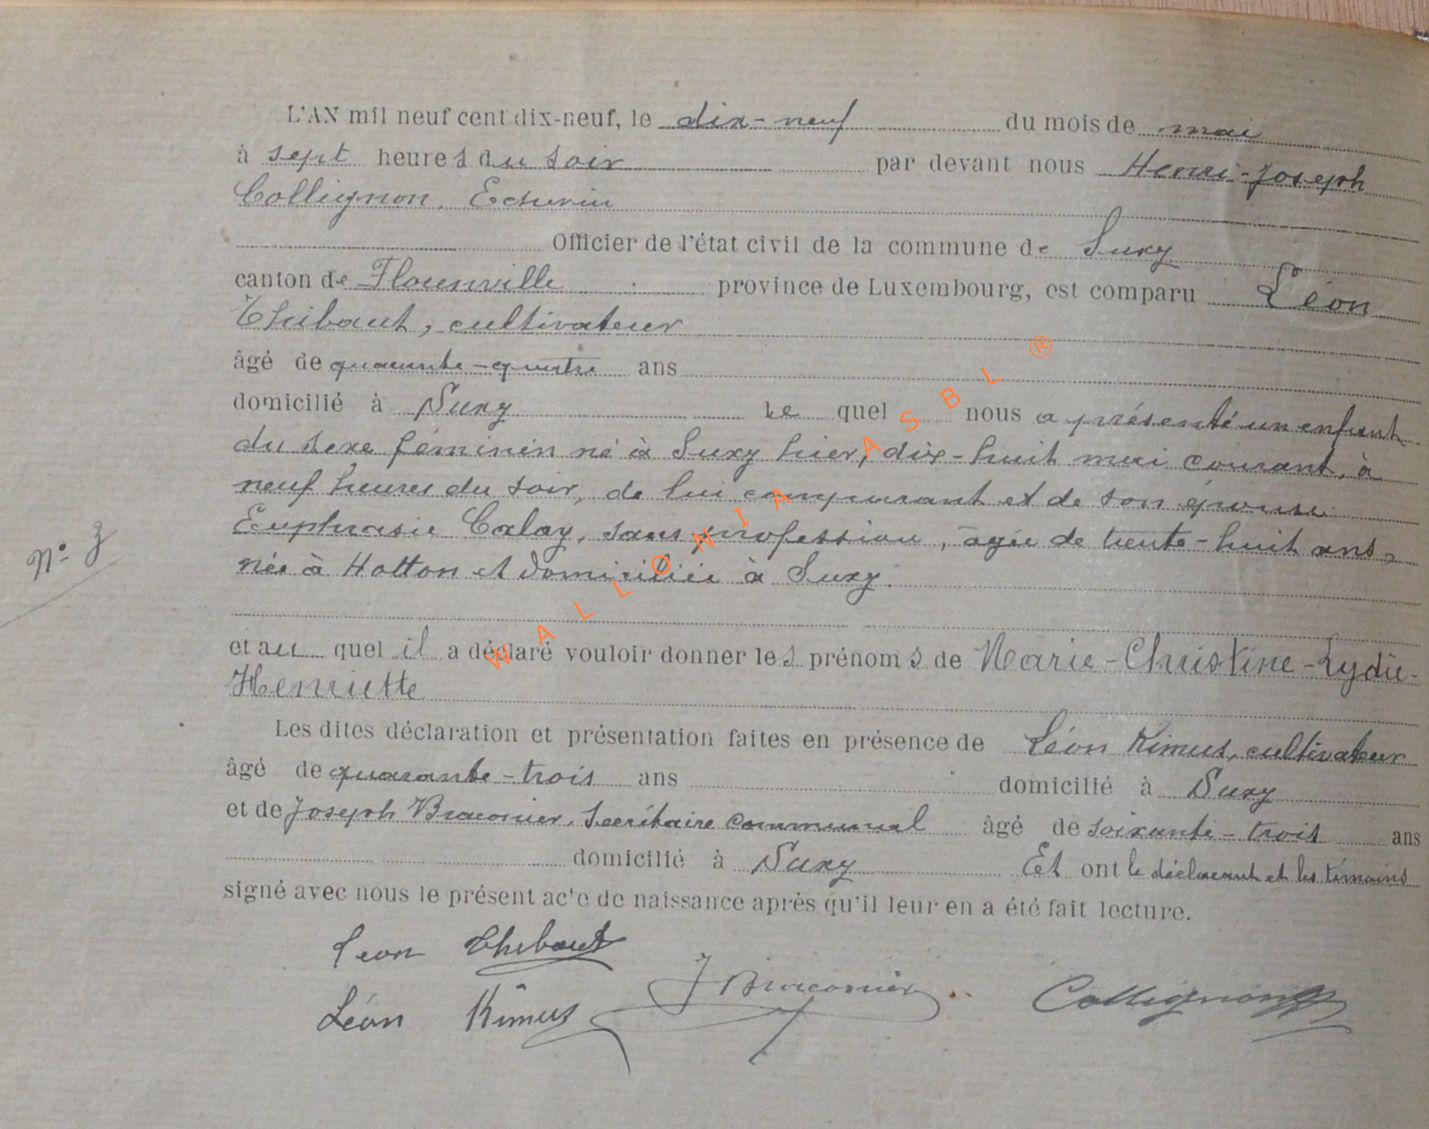 L'AN mil neuf cent dix-neuf, le dix-neuf du mois de mai
à sept heures du soir par devant nous Henri-Joseph
Collignon, Echevin
Officier de l'état civil de la commune de Suxy
canton de Florenville province de Luxembourg, est comparu Léon
Thibaut, cultivateur
âgé de quarante-quatre ans
domicilié à Suxy le quel nous a présenté un enfant
du sexe féminin né à Suxy hier, dix-huit mai courant, à
neuf heures du soir, de lui comparant et de son épouse
Euphrasie Calay, sans profession, âgée de trente-huit ans,
N° 3
née à Hotton et domiciliée à Suxy.
et au quel il a déclaré vouloir donner les prénoms de Marie-Christine-Lydie-
Henriette
Les dites déclaration et présentation faites en présence de Léon Kimus, cultivateur
âgé de quarante-trois ans domicilié à Suxy
et de Joseph Braconier, secrétaire communal âgé de soixante-trois ans
domicilié à Suxy Et ont le déclarant et les témoins
signé avec nous le présent acte de naissance après qu'il leur en a été fait lecture.
Leon Thibaut
J Braconier Collignon
Léon Kimus
WALLONIA ASBL ®